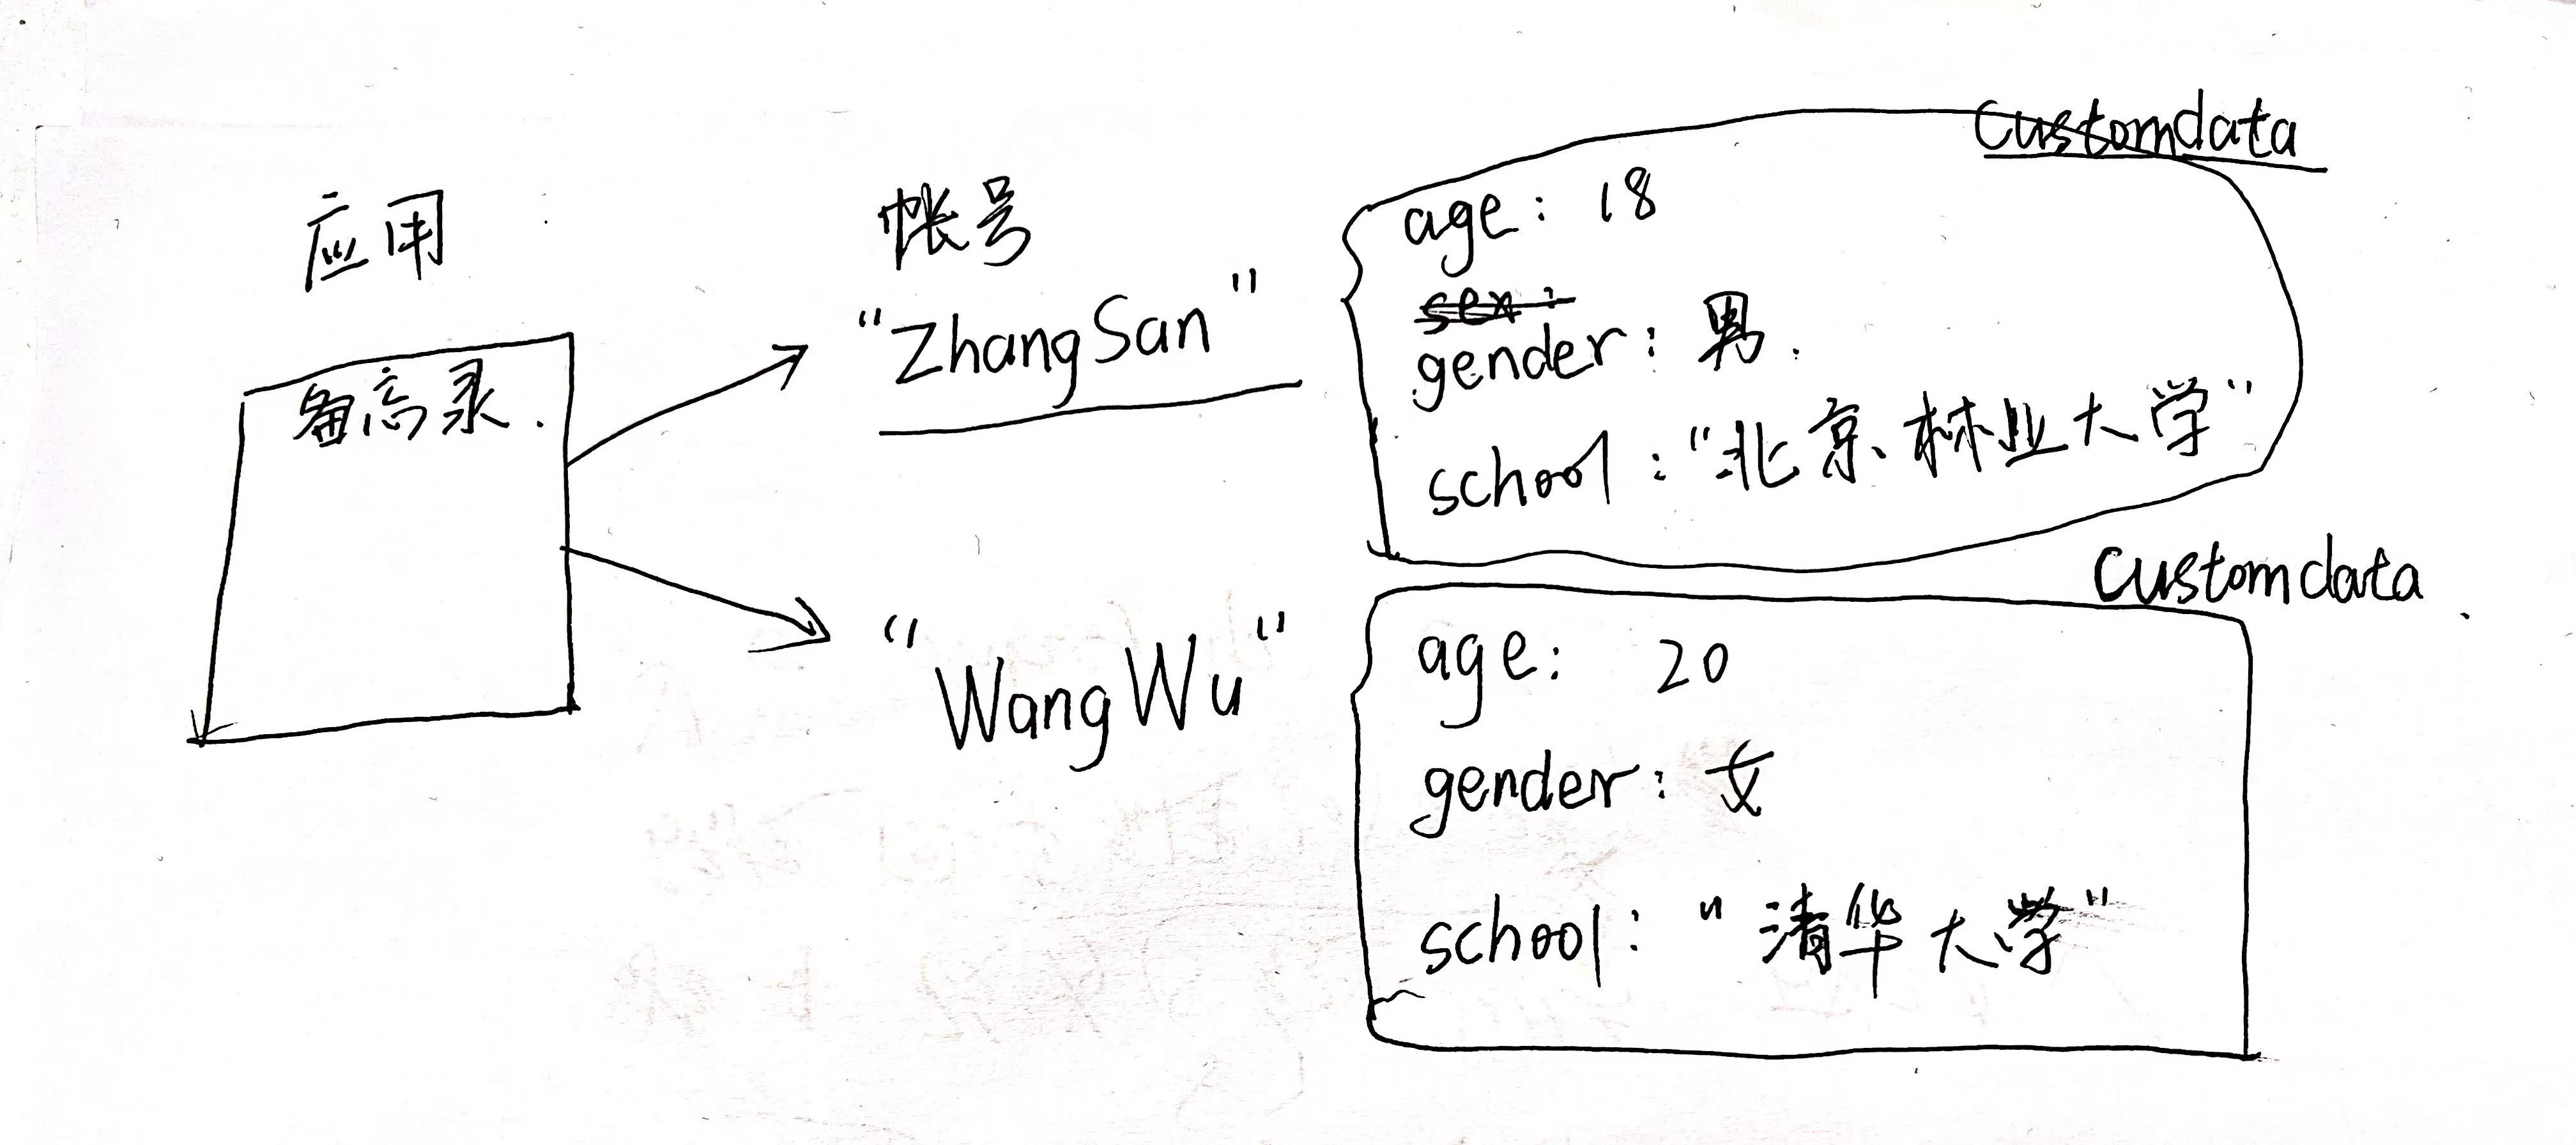 应用
备忘录.
帐号
"ZhangSan"
"WangWu"
Customdata
age: 18
sex:
gender: 男.
school: "北京林业大学"
Customdata
age: 20
gender: 女
school: "清华大学"